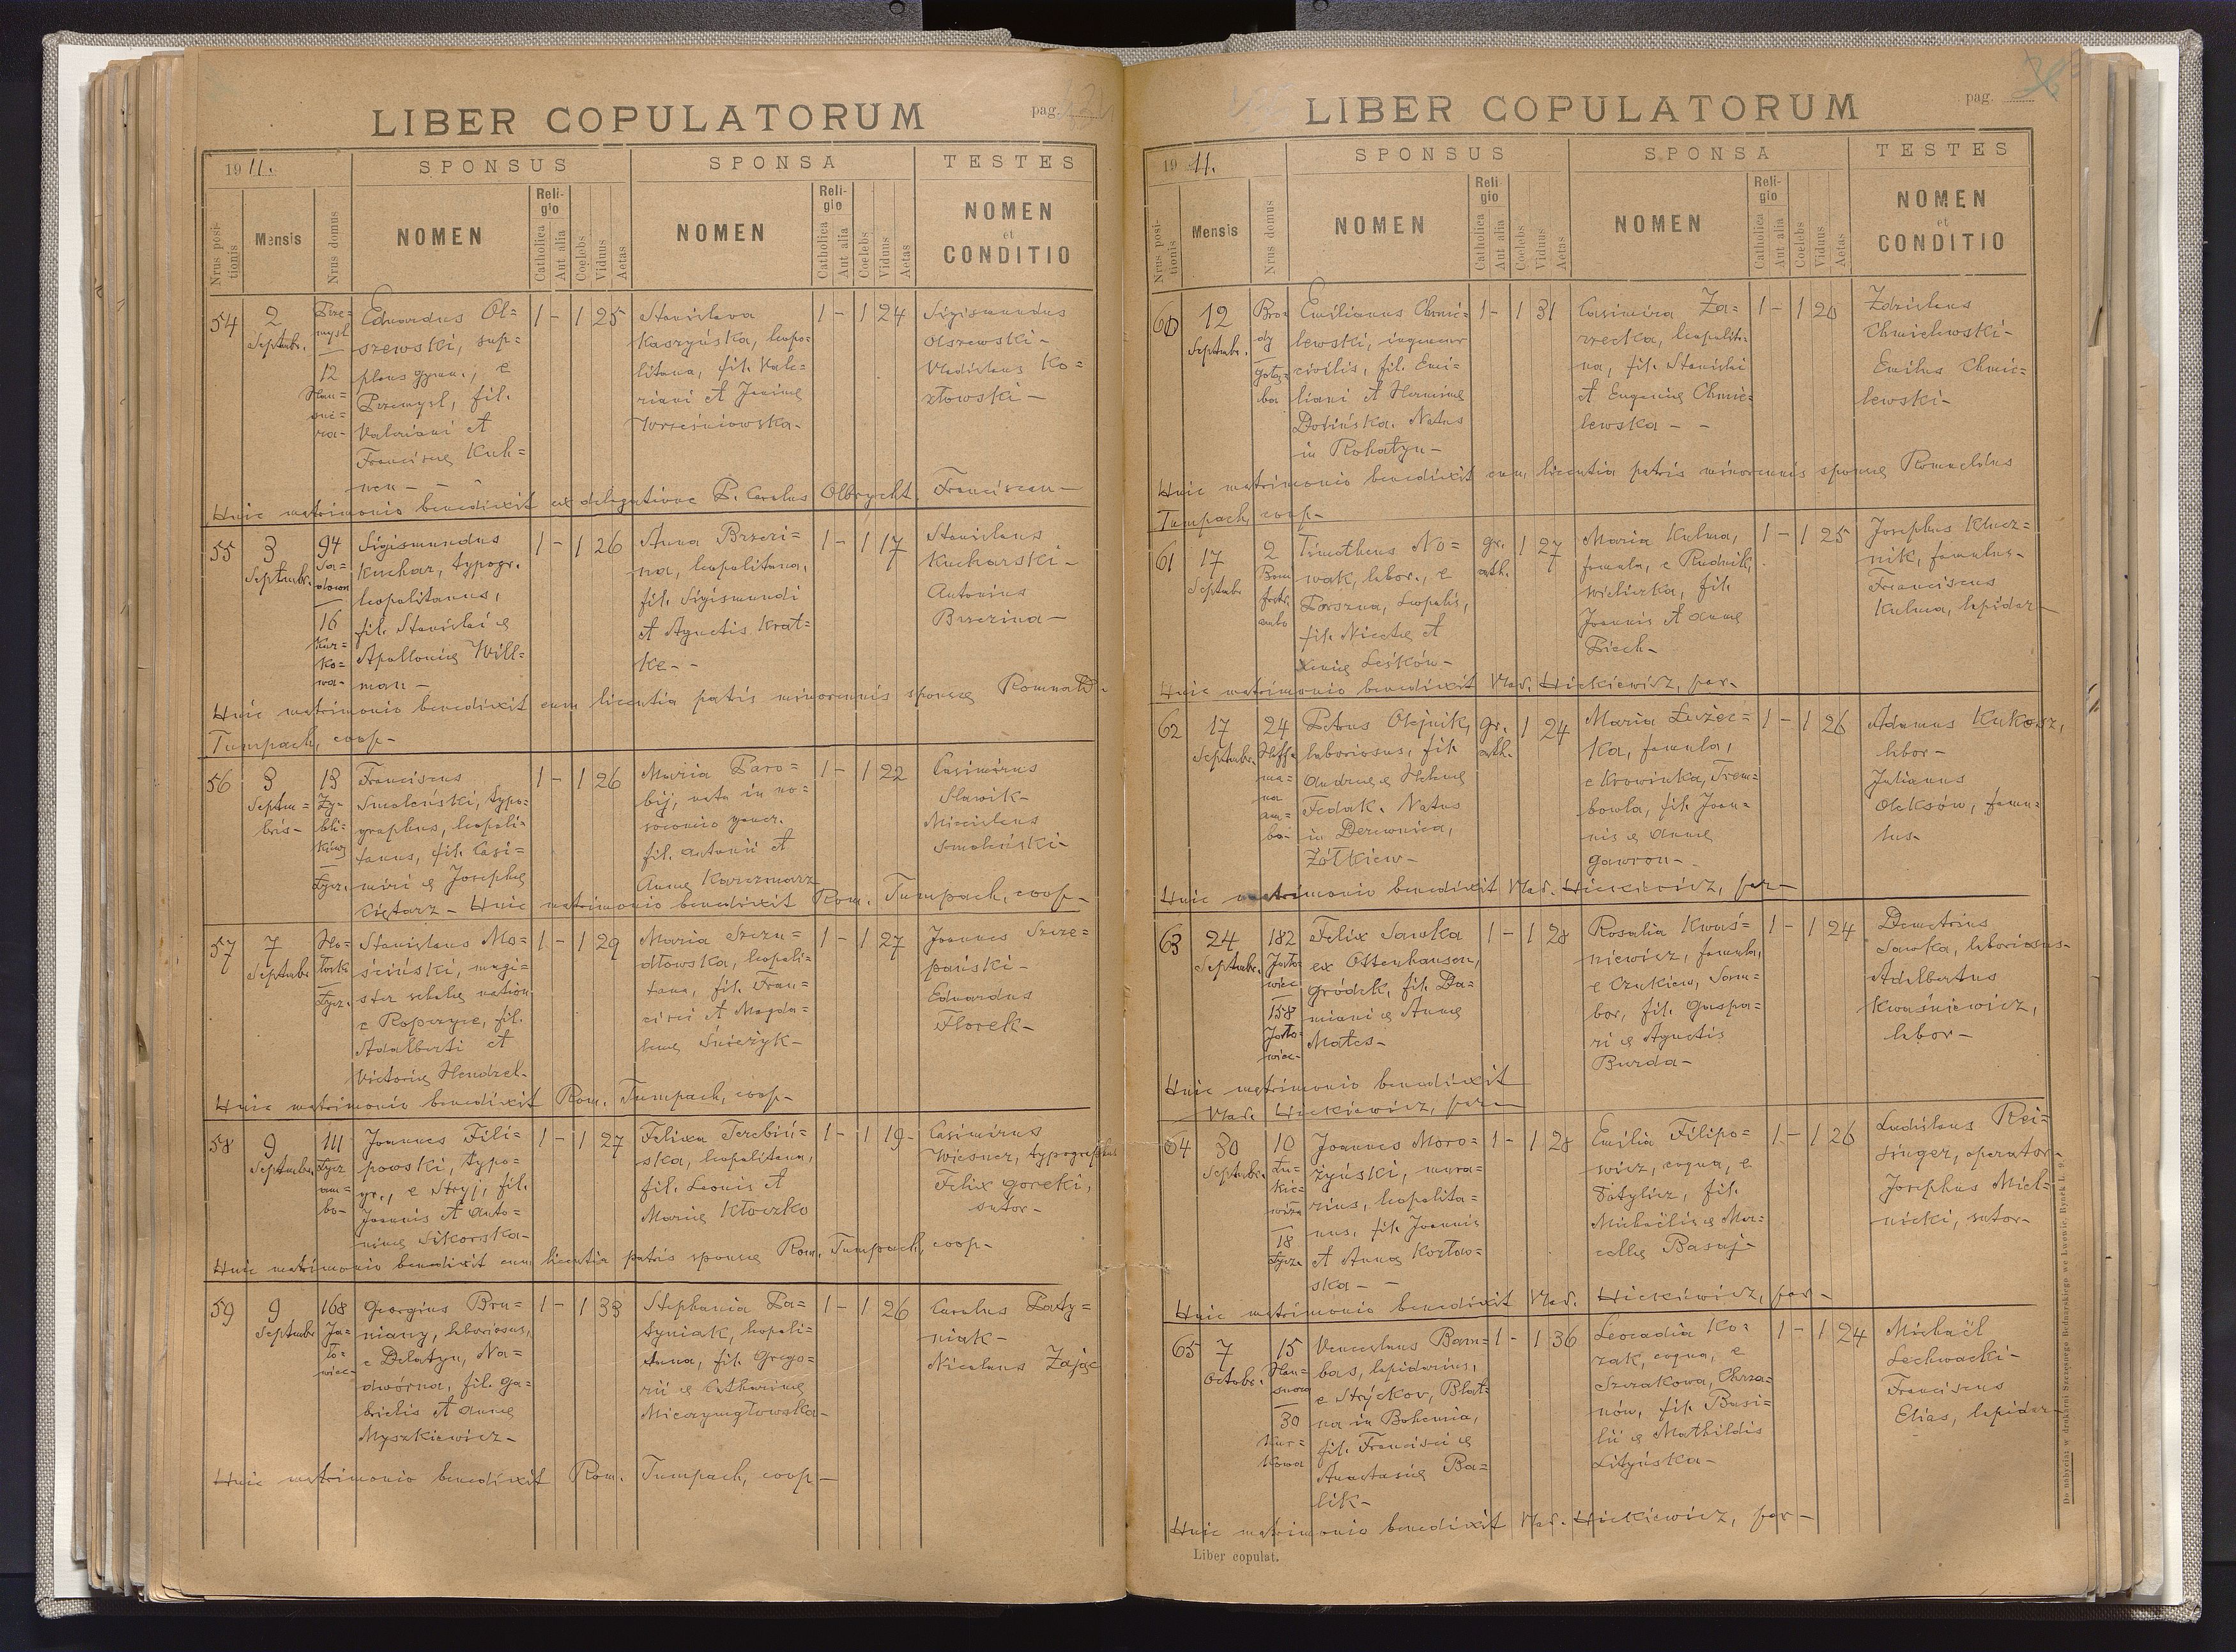 LIBER COPULATORUM
pag.
1911.
SPONSUS
SPONSA
TESTES
Nrus positionis
Mensis
Nrus domus
NOMEN
Religio
Catholica
Aut alia
Coelebs
Viduus
Aetas
NOMEN
Religio
Catholica
Aut alia
Coelebs
Viduus
Aetas
NOMEN
et
CONDITIO
54
2
Septembr.
Prze=
mysl
12
Eduardus Ol=
szewski, sup=
plens gymn., e
Przemysl, fil.
Valeriani et
Franciscae Kuh=
nen -
1 - 1 25
Stanislava
Kaszyńska, leopo=
litana, fil. Vale=
riani et Joannae
Wrześniowska -
1 - 1 24
Sigismundus
Olszewski -
Vladislaus Ko=
złowski -
Huic matrimonio benedixit ex delegatione P. Carolus Olbrycht, Franciscan -
55
3
Septembr.
94
16
Sigismundus
Kuchar, typogr.
leopolitanus,
fil. Stanislai &
Apolloniae Will=
man -
1 - 1 26
Anna Brzezi=
na, leopolitana,
fil. Sigismundi
et Agnetis Krat=
ke -
1 - 1 17
Stanislaus
Kucharski -
Antonius
Brzezina -
Huic matrimonio benedixit cum licentia patris minorennis sponsae Romuald
Tumpach, coop -
56
3
Septem=
bris -
13
Zy=
bli=
kiewi
Łycz.
Franciscus
Smoleński, typo=
graphus, leopoli=
tanus, fil. Casi=
miri & Josephae
Ciężarz -
1 - 1 26
Maria Paro=
bij, nata in no=
socomio gener.
fil. Antonii et
Annae Karczmarz
1 - 1 22
Casimirus
Slawik -
Miecislaus
Smoleński -
Huic matrimonio benedixit Rom. Tumpach, coop -
57
7
Septembr.
Łycz.
Stanislaus Mo=
ściński, magi=
ster scholae nation.
e Ropczyce, fil.
Adalberti et
Victoriae Hendzel.
1 - 1 29
Maria Szczu=
dłowska, leopoli=
tana, fil. Fran=
cisci et Magda=
lenae Świeżyk -
1 - 1 27
Joannes Szcze=
pański -
Eduardus
Florek -
Huic matrimonio benedixit Rom. Tumpach, coop -
58
9
Septembr.
111
Łycz
am=
bo -
Joannes Fili=
powski, typo=
gr., e Stryj, fil.
Joannis et Anto=
ninae Sikorska -
1 - 1 27
Felixa Terebiń=
ska, leopolitana,
fil. Leonis et
Mariae Kłoczko
1 - 1 19 -
Casimirus
Wiesner, typographus
Felix Gorecki,
sutor -
Huic matrimonio benedixit cum licentia patris sponsae Rom. Tumpach, coop -
59
9
Septembr
168
Ja=
ło=
wiec -
Georgius Bru=
niany, laboriosus,
e Delatyn, Na=
dwórna, fil. Ga=
brielis et Annae
Myszkiewicz -
1 - 1 33
Stephania Pa=
tyniak, leopoli=
tana, fil. Grego=
rii & Catharinae
Mieczymgłowska -
1 - 1 26
Carolus Paty=
niak -
Nicolaus Zając
Huic matrimonio benedixit Rom. Tumpach, coop -
LIBER COPULATORUM
pag.
1911.
SPONSUS
SPONSA
TESTES
Nrus positionis
Mensis
Nrus domus
NOMEN
Religio
Catholica
Aut alia
Coelebs
Viduus
Aetas
NOMEN
Religio
Catholica
Aut alia
Coelebs
Viduus
Aetas
NOMEN
et
CONDITIO
60
12
Septembr.
Bro=
dy
Gołą=
ba
Emilianus Chmie=
lewski, ingeneur
civilis, fil. Emi=
liani et Herminae
Dolińska. Natus
in Rohatyn -
1 - 1 31
Casimira Za=
rzecka, leopolita=
na, fil. Stanislai
et Eugeniae Chmie=
lewska - -
1 - 1 20
Zdzislaus
Chmielewski -
Emilus Chmie=
lewski -
Huic matrimonio benedixit cum licentia patris minorennis sponsae Romualdus
Tumpach, coop -
61
17
Septembr
2
ambo
Timotheus No=
wak, labor., e
Porszna, Leopolis,
fil. Nicetae et
Xeniae Leśków -
gr.
cath.
1 27
Maria Kulma,
famula, e Rudnik,
Wieliczka, fil.
Joannis et Annae
Piech -
1 - 1 25
Josephus Klucz=
nik, famulus -
Franciscus
Kulma, lapidar -
Huic matrimonio benedixit Vlad. Hickiewicz, par -
62
17
Septembr.
24
Hoff=
ma=
na
am=
bo -
Petrus Olejnik,
laboriosus, fil.
Andreae & Helenae
Fedak. Natus
in Derewnica,
Żółkiew -
gr.
cath.
1 24
Maria Łużec=
ka, famula,
e Krowinka, Trem=
bowla, fil. Joan=
nis & Annae
Gawron -
1 - 1 26
Adamus Kukosz,
labor -
Julianus
Oleksów, famu=
lus -
Huic matrimonio benedixit Vlad. Hickiewicz, par -
63
24
Septembr.
182
Jało=
wiec
158
Jało=
wiec -
Felix Sawka
ex Ottenhausen,
Gródek, fil. Da=
miani & Annae
Mates -
1 - 1 28
Rosalia Kwaś=
niewicz, famula,
e Czukiew, Sam=
bor, fil. Gaspa=
ri & Agnetis
Burda -
1 - 1 24
Demetrius
Sawka, laboriosus -
Adalbertus
Kwaśniewicz,
labor -
Huic matrimonio benedixit
Vlad. Hickiewicz, par -
64
30
Septembr.
10
Łu=
kie=
wicza
18
Łycza
Joannes Moro=
żyński, mura=
rius, leopolita=
nus, fil. Joannis
et Annae Kozłow=
ska - -
1 - 1 28
Emilia Filipo=
wicz, coqua, e
Potylicz, fil.
Michaëlis & Mar=
cellae Basaj -
1 - 1 26
Ladislaus Rei=
singer, operator -
Josephus Miel=
nicki, sutor -
Huic matrimonio benedixit Vlad. Hickiewicz, par -
65
7
Octobr.
15
Hau=
snera
30
Kur=
kowa
Venceslaus Bam=
bas, lapidarius,
e Strýckov, Blat=
na in Bohemia,
fil. Francisci &
Anastasiae Ba=
lik -
1 - 1 36
Leocadia Ko=
zak, coqua, e
Szczakowa, Chrza=
nów, fil. Basi=
lii & Mathildis
Lityńska -
1 - 1 24
Michaël
Lechwacki -
Franciscus
Elias, lapidar -
Huic matrimonio benedixit Vlad. Hickiewicz, par -
Liber copulat.
Do nabycia w drukarni Szczęsnego Bednarskiego we Lwowie, Rynek l. 9.